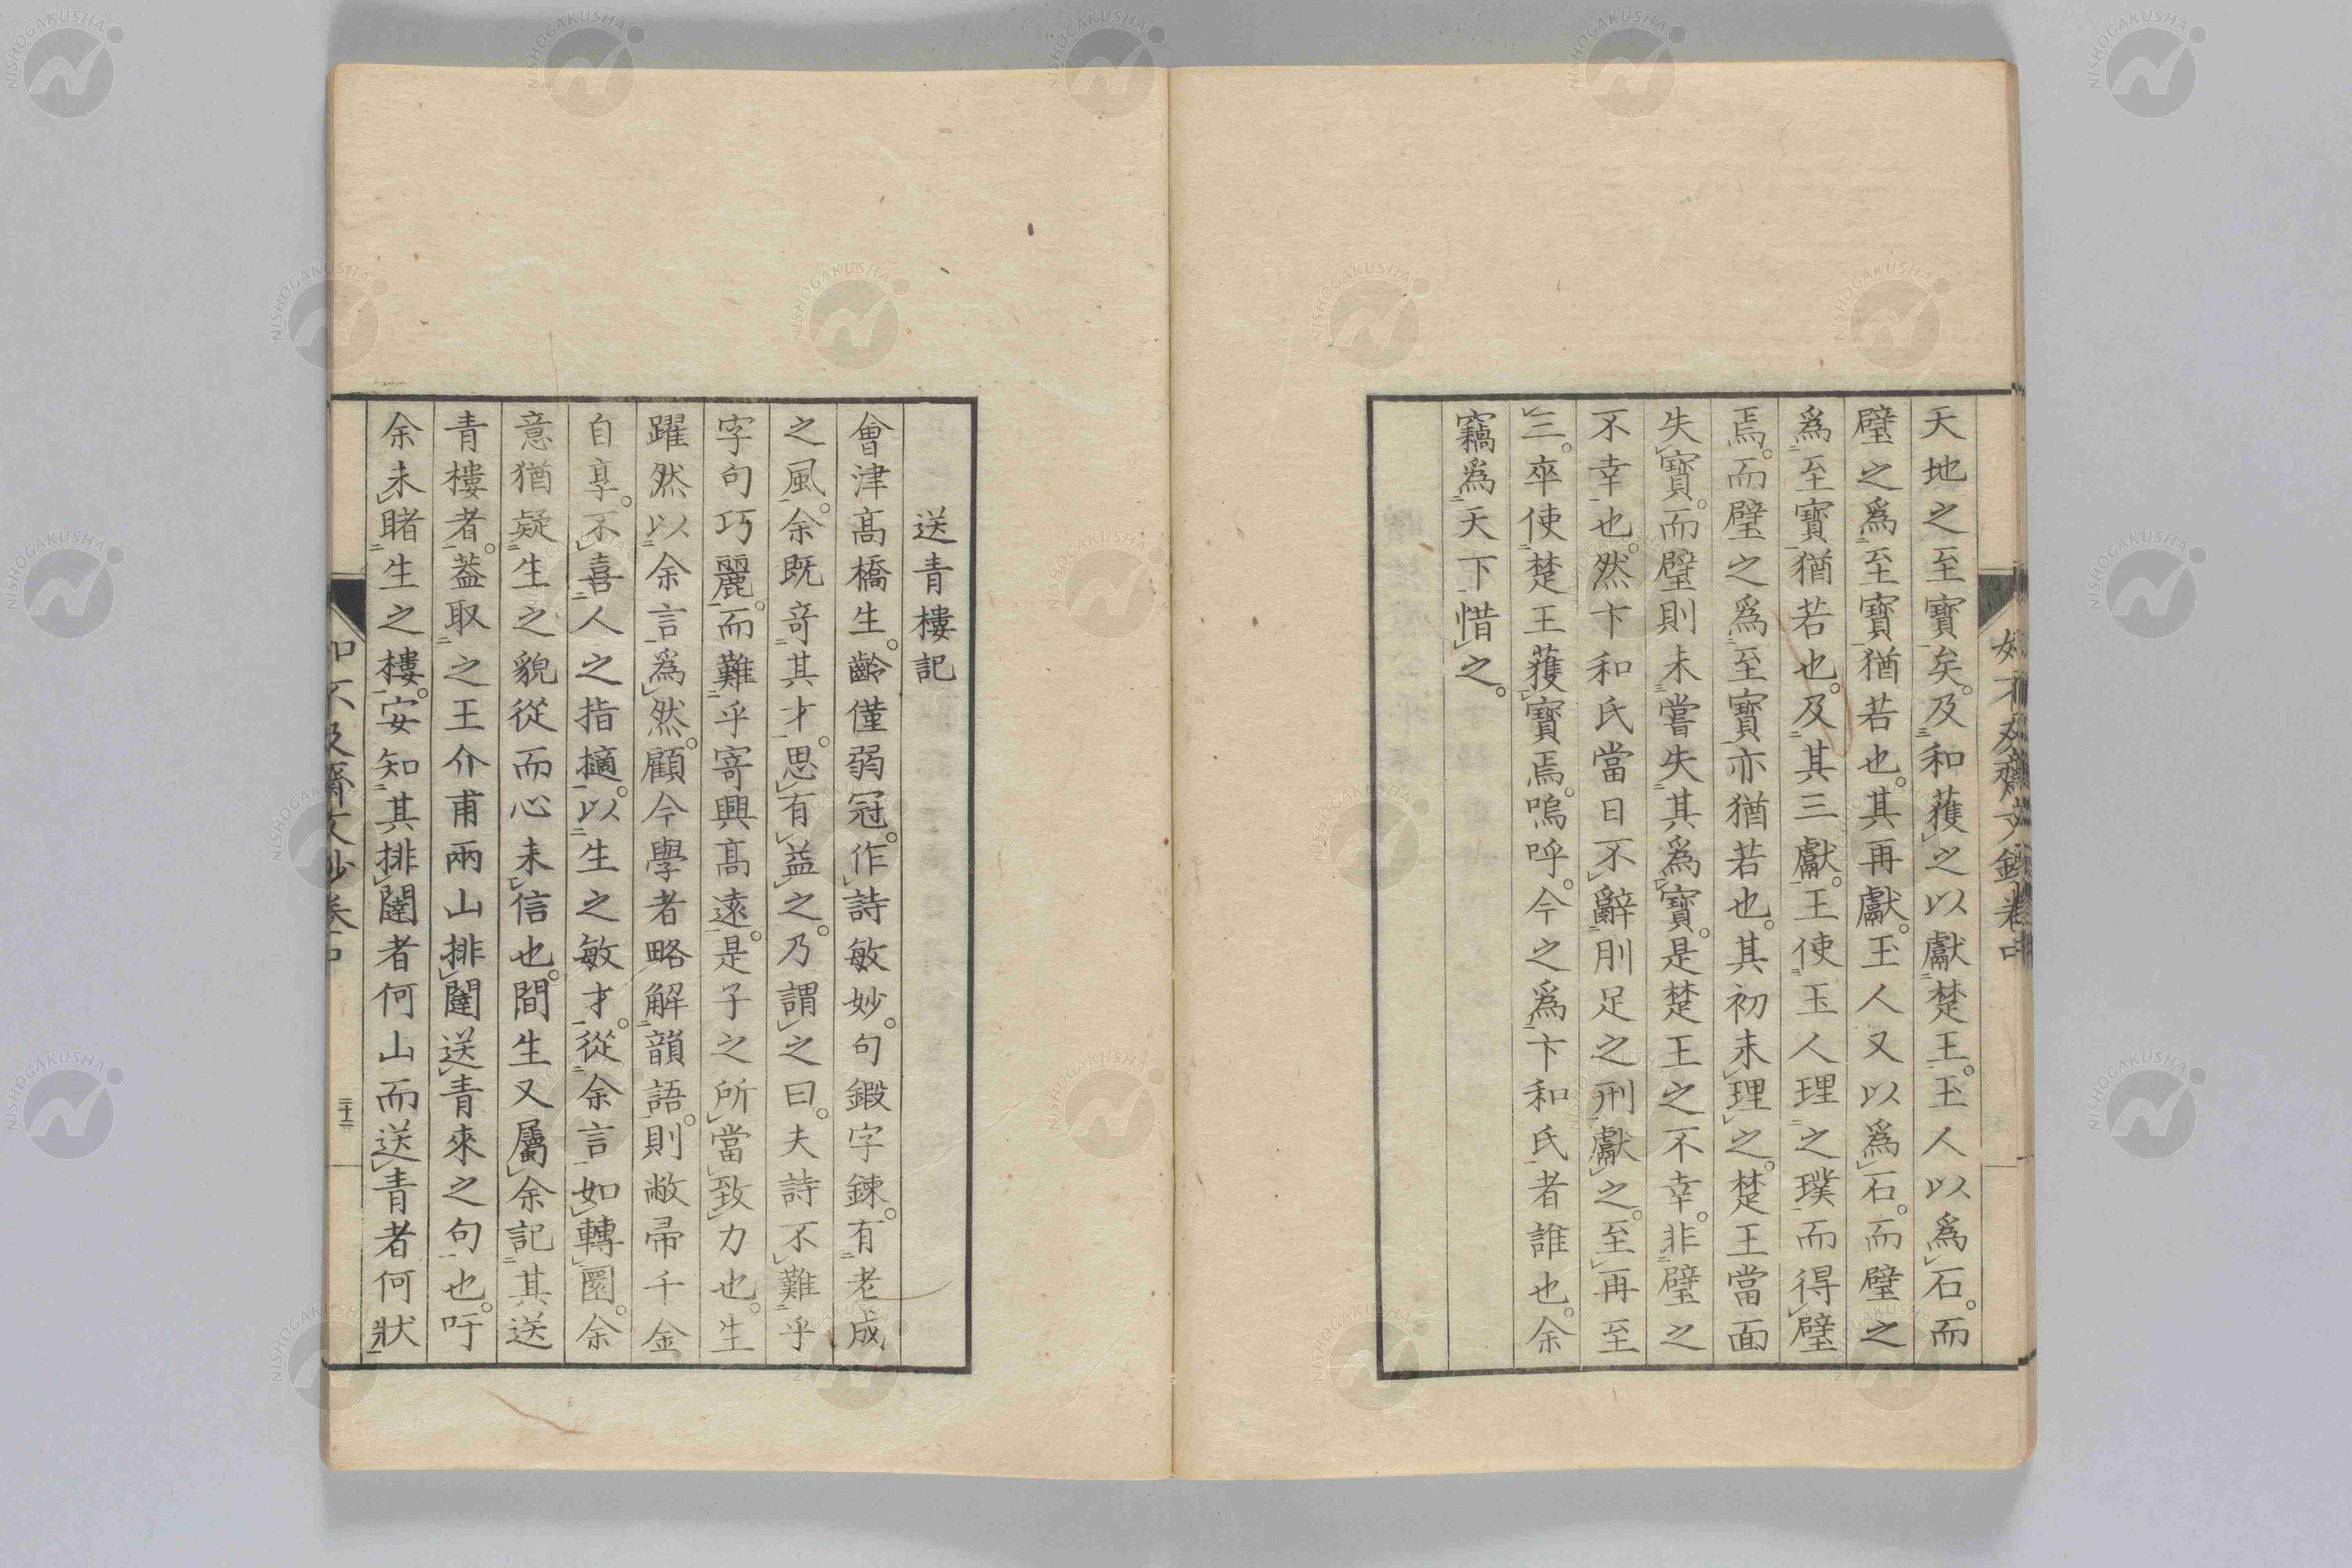 天地之至寶矣。及和獲之以獻楚王。玉人以爲石。而
璧之爲至寶猶若也。其再獻。玉人又以爲石。而璧之
爲至寶猶若也。及其三獻。王使玉人理之璞而得璧
焉。而璧之爲至寶亦猶若也。其初未理之。楚王當面
失寶。而璧則未嘗失其爲寶。是楚王之不幸。非璧之
不幸也。然卞和氏當日不辭刖足之刑獻之。至再至
三。卒使楚王獲寶焉。嗚呼。今之爲卞和氏者誰也。余
竊爲天下惜之。
送青樓記
會津高橋生。齡僅弱冠。作詩敏妙。句鍛字鍊。有老成
之風。余既奇其才。思有益之。乃謂之曰。夫詩不難乎
字句巧麗。而難乎寄興高遠。是子之所當致力也。生
躍然以余言爲然。顧今學者略解韻語。則敝帚千金
自享。不喜人之指擿。以生之敏才。從余言如轉圜。余
意猶疑生之貌從而心未信也。間生又屬余記其送
青樓者。蓋取之王介甫兩山排闥送青來之句也。吁
余未睹生之樓。安知其排闥者何山而送青者何狀
如不及齋文鈔卷中
二十二
NISHOGAKUSHA